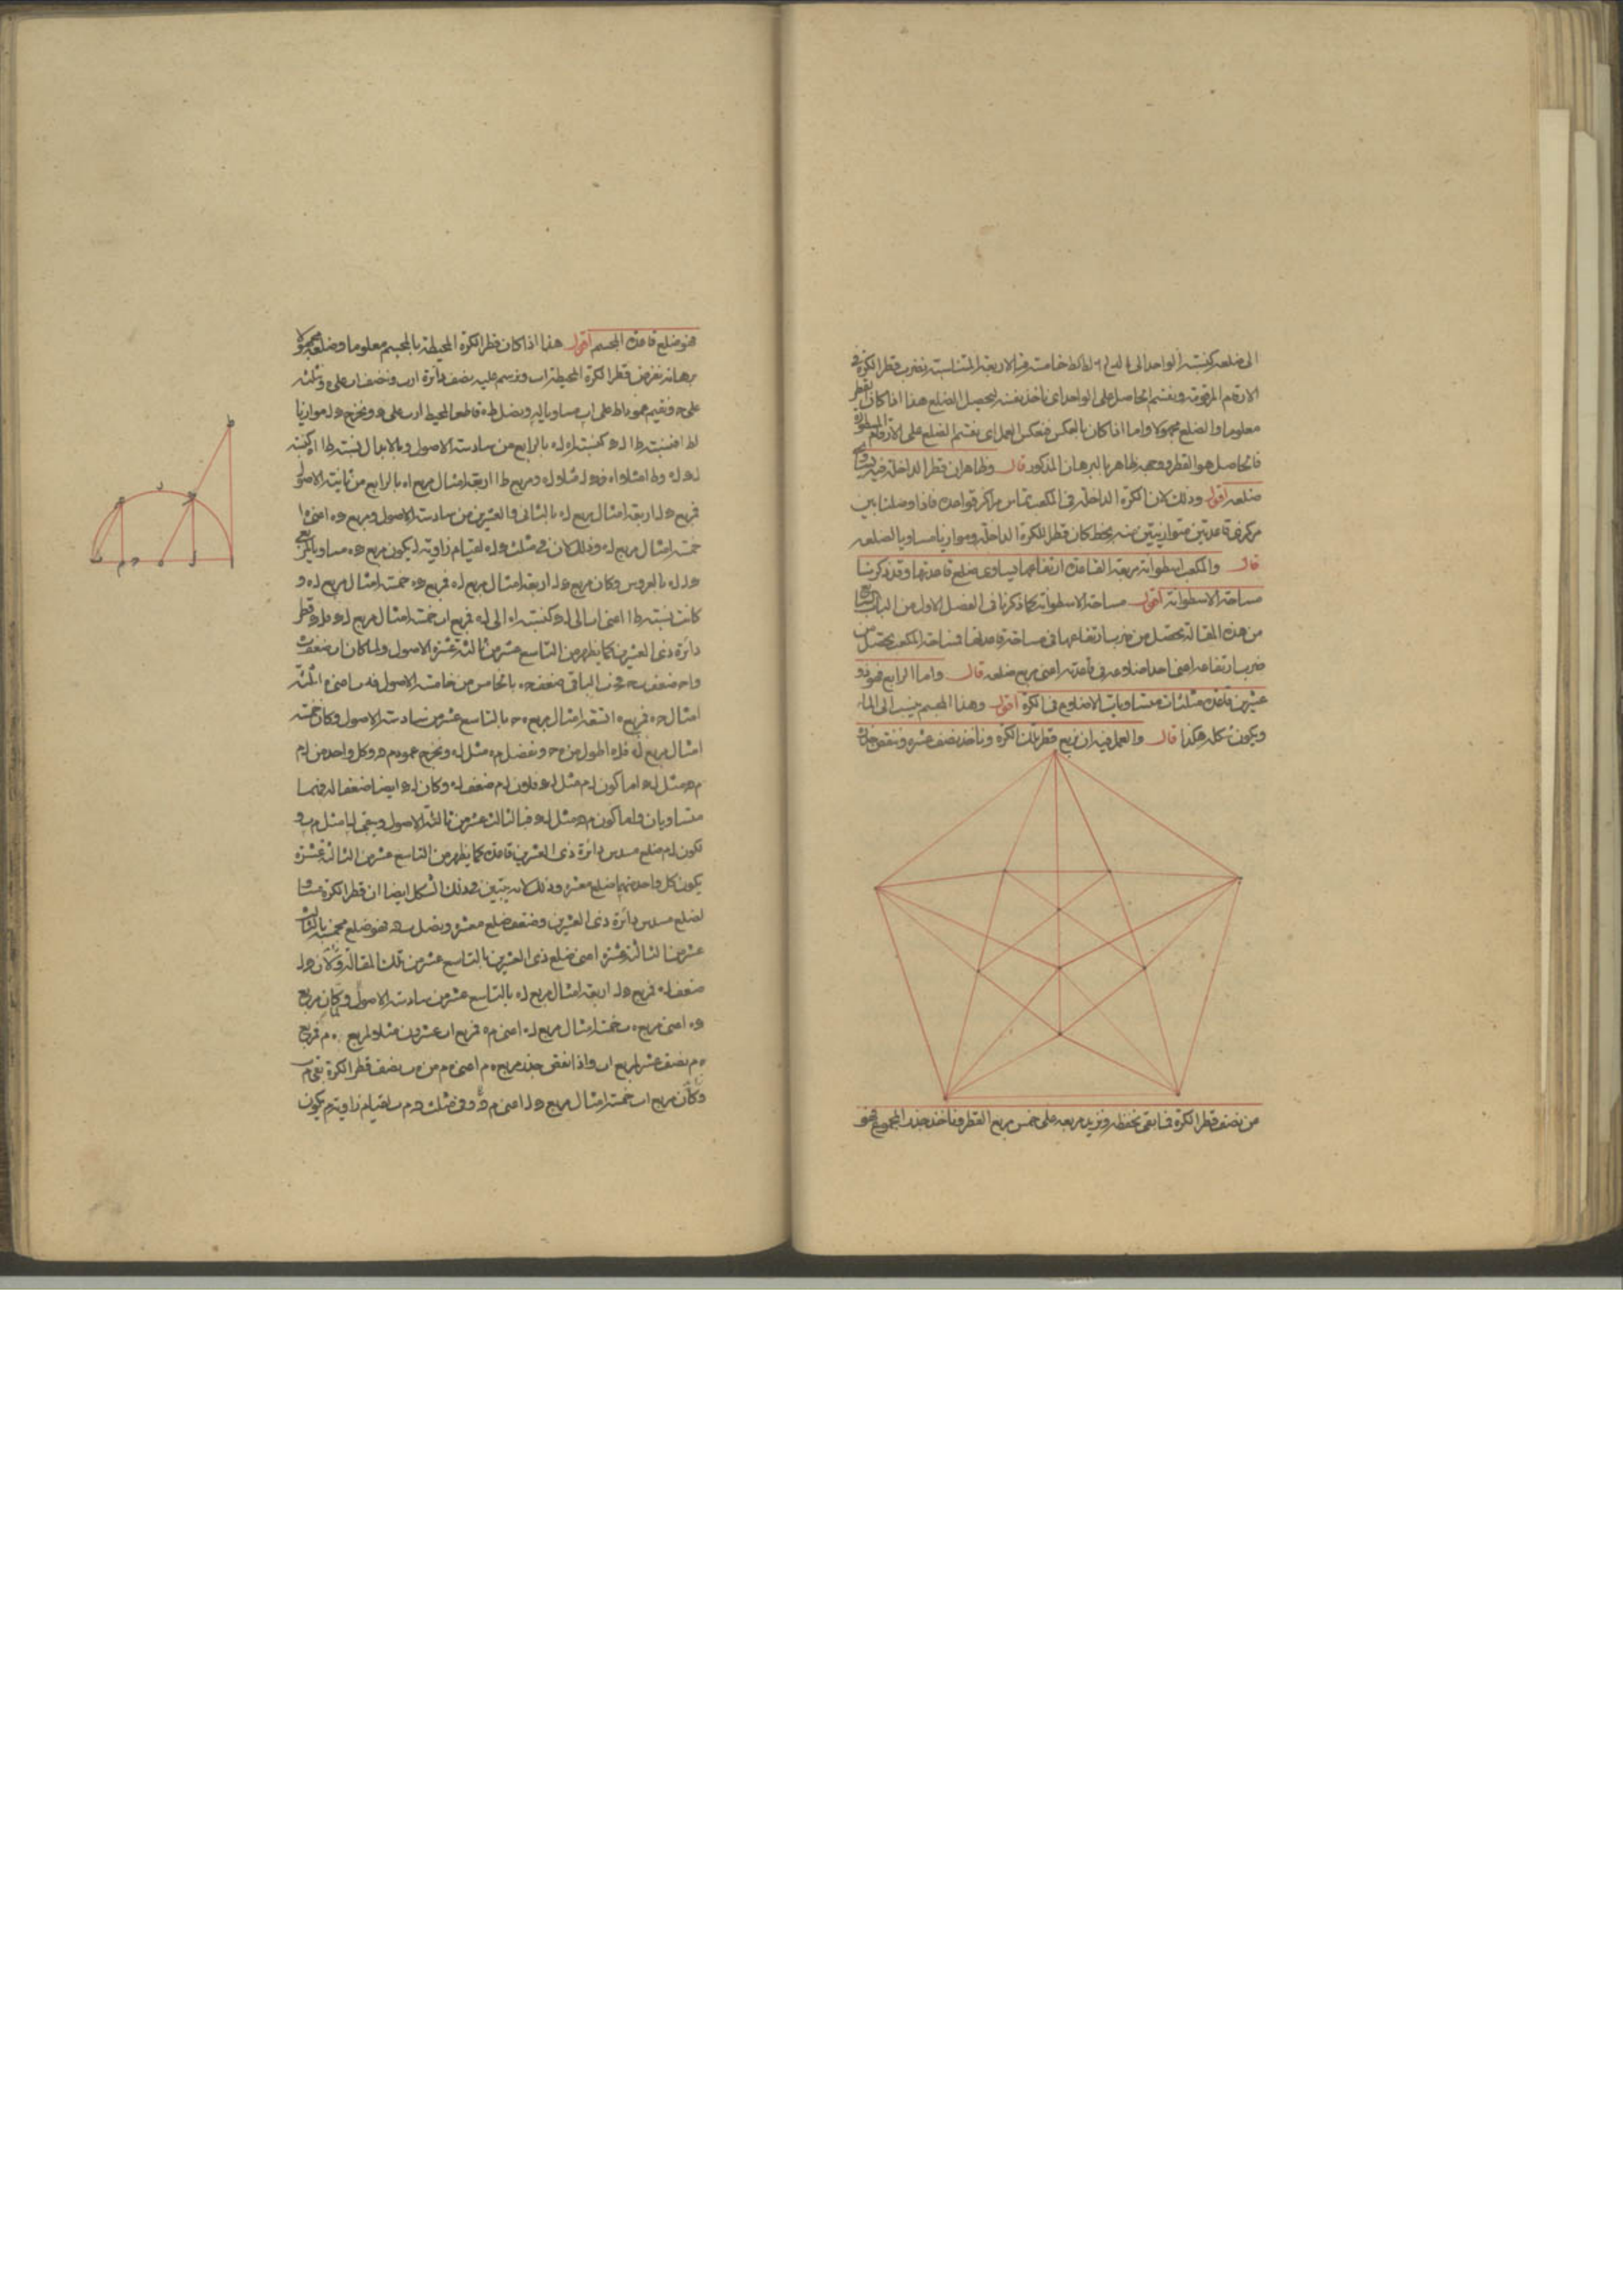 الى ضلعه كنسبة الواحد الى
الارقام المرقومة ونقسم الحاصل على الواحد اى نأخذ نفسه ليحصل الضلع هذا اذا كان القطر
معلوما والضلع مجهولا واما اذا كان بالعكس فنعكس العمل اى نقسم الضلع على الارقام
فالحاصل هو القطر ووجهه ظاهر بالبرهان المذكور قال وظاهر ان قطر الداخلة فيه يساوى
ضلعه اقول وذلك لان الكرة الداخلة فى المكعب تماس مراكز قواعده فاذا وصلنا بين
مركزى قاعدتين متوازيتين منه بخط كان قطر للكرة الداخلة وموازيا مساويا لضلعه
قال والمكعب اسطوانة مربعة القاعدة ارتفاعها يساوى ضلع قاعدتها وقد ذكرنا
مساحة الاسطوانة اقول مساحة الاسطوانة كما ذكرنا فى الفصل الاول من الباب
من هذه المقالة يحصل من ضرب ارتفاعها فى مساحة قاعدتها فمساحة المكعب يحصل من
ضرب ارتفاعه اعنى احد اضلاعه فى قاعدته اعنى مربع ضلعه قال واما الرابع فهو ذو
عشرين قاعدة مثلثات متساويات الاضلاع فى الكرة اقول وهذا المجسم ينسب الى الماء
ويكون شكله هكذا قال والعمل فيه ان نربع قطر تلك الكرة ونأخذ نصف عشره وننقص جذره
من نصف قطر الكرة فما بقى نحفظه ونزيد مربعه على خمس مربع القطر ونأخذ جذر المجموع فهو
فهو ضلع قاعدة المجسم اقول هذا اذا كان قطر الكرة المحيطة بالمجسم معلوما وضلعه مجهولا
برهانه نفرض قطر الكرة المحيطة اب ونرسم عليه نصف دائرة ارب وننصف اب على ء ونثلثه
على ح ونقيم عمود اط على اب مساويا له ونصل طء قاطعا لمحيط ارب على و ونخرج ول موازيا
لط ا فنسبة طا الى ول كنسبة اء الى لء بالرابع من سادسة الاصول وبالابدال نسبة طا الى اء كنسبة
ول لء وطا مثلا اء فول مثلا لء ومربع طا اربعة امثال مربع اء بالرابع من ثانية الاصول
فمربع ول اربعة امثال مربع لء بالثانى والعشرين من سادسة الاصول ومربع وء اعنى
خمسة امثال مربع لء وذلك لان فى مثلث ولء لقيام زاوية ل يكون مربع وء مساويا لمربعى
ول لء بالعروس وكان مربع ول اربعة امثال مربع لء فمربع وء خمسة امثال مربع لء و
كانت نسبة طا اعنى اب الى ول كنسبة اء الى لء فمربع اب خمسة امثال مربع ول فول قطر
دائرة ذى العشرين كما يظهر من التاسع عشر من ثالثة عشرة الاصول ولما كان اب ضعف
واح ضعف ح ب فح ب الباقى ضعف حء بالخامس من خامسة الاصول فء ب اعنى ء ا ثلثة
امثال حء فمربع ء ا تسعة امثال مربع ء ح بالتاسع عشر من سادسة الاصول وكان خمسة
امثال مربع لء فلء اطول من ء ح ونفصل مء مثل لء ونخرج عمود م ه وكل واحد من ل م
م ه مثل ل و اما كون ل م مثل ل و فلان ل م ضعف لء وكان ل و ايضا ضعفا له فهما
متساويان واما كون م ه مثل ل و فبالثالث عشر من ثالثة الاصول ويبقى ل ا مثل م ب و
لكون ل م ضلع مسدس دائرة ذى العشرين قاعدة كما يظهر من التاسع عشر من الثالثة عشرة
يكون كل واحد منهما ضلع معشره وذلك لانه يتبين فى ذلك الشكل ايضا ان قطر الكرة مساو
لضلع مسدس دائرة ذى العشرين وضعف ضلع معشره ونصل ب ه فهو ضلع مخمسه بالثالث
عشر من الثالثة عشرة اعنى ضلع ذى العشرين بالتاسع عشر من تلك المقالة ولان ول
ضعف لء فمربع ول اربعة امثال مربع لء بالتاسع عشر من سادسة الاصول وكان مربع
وء اعنى مربع ء ب خمسة امثال مربع لء اعنى مء فمربع اب عشرون مثلا لمربع ء م فمربع
ء م نصف عشر لمربع اب واذا نقص جذر مربع ء م اعنى ء م من ء ب نصف قطر الكرة بقى م ب
وكان مربع اب خمسة امثال مربع ول اعنى م ه وفى مثلث ه م ب لقيام زاوية م يكون